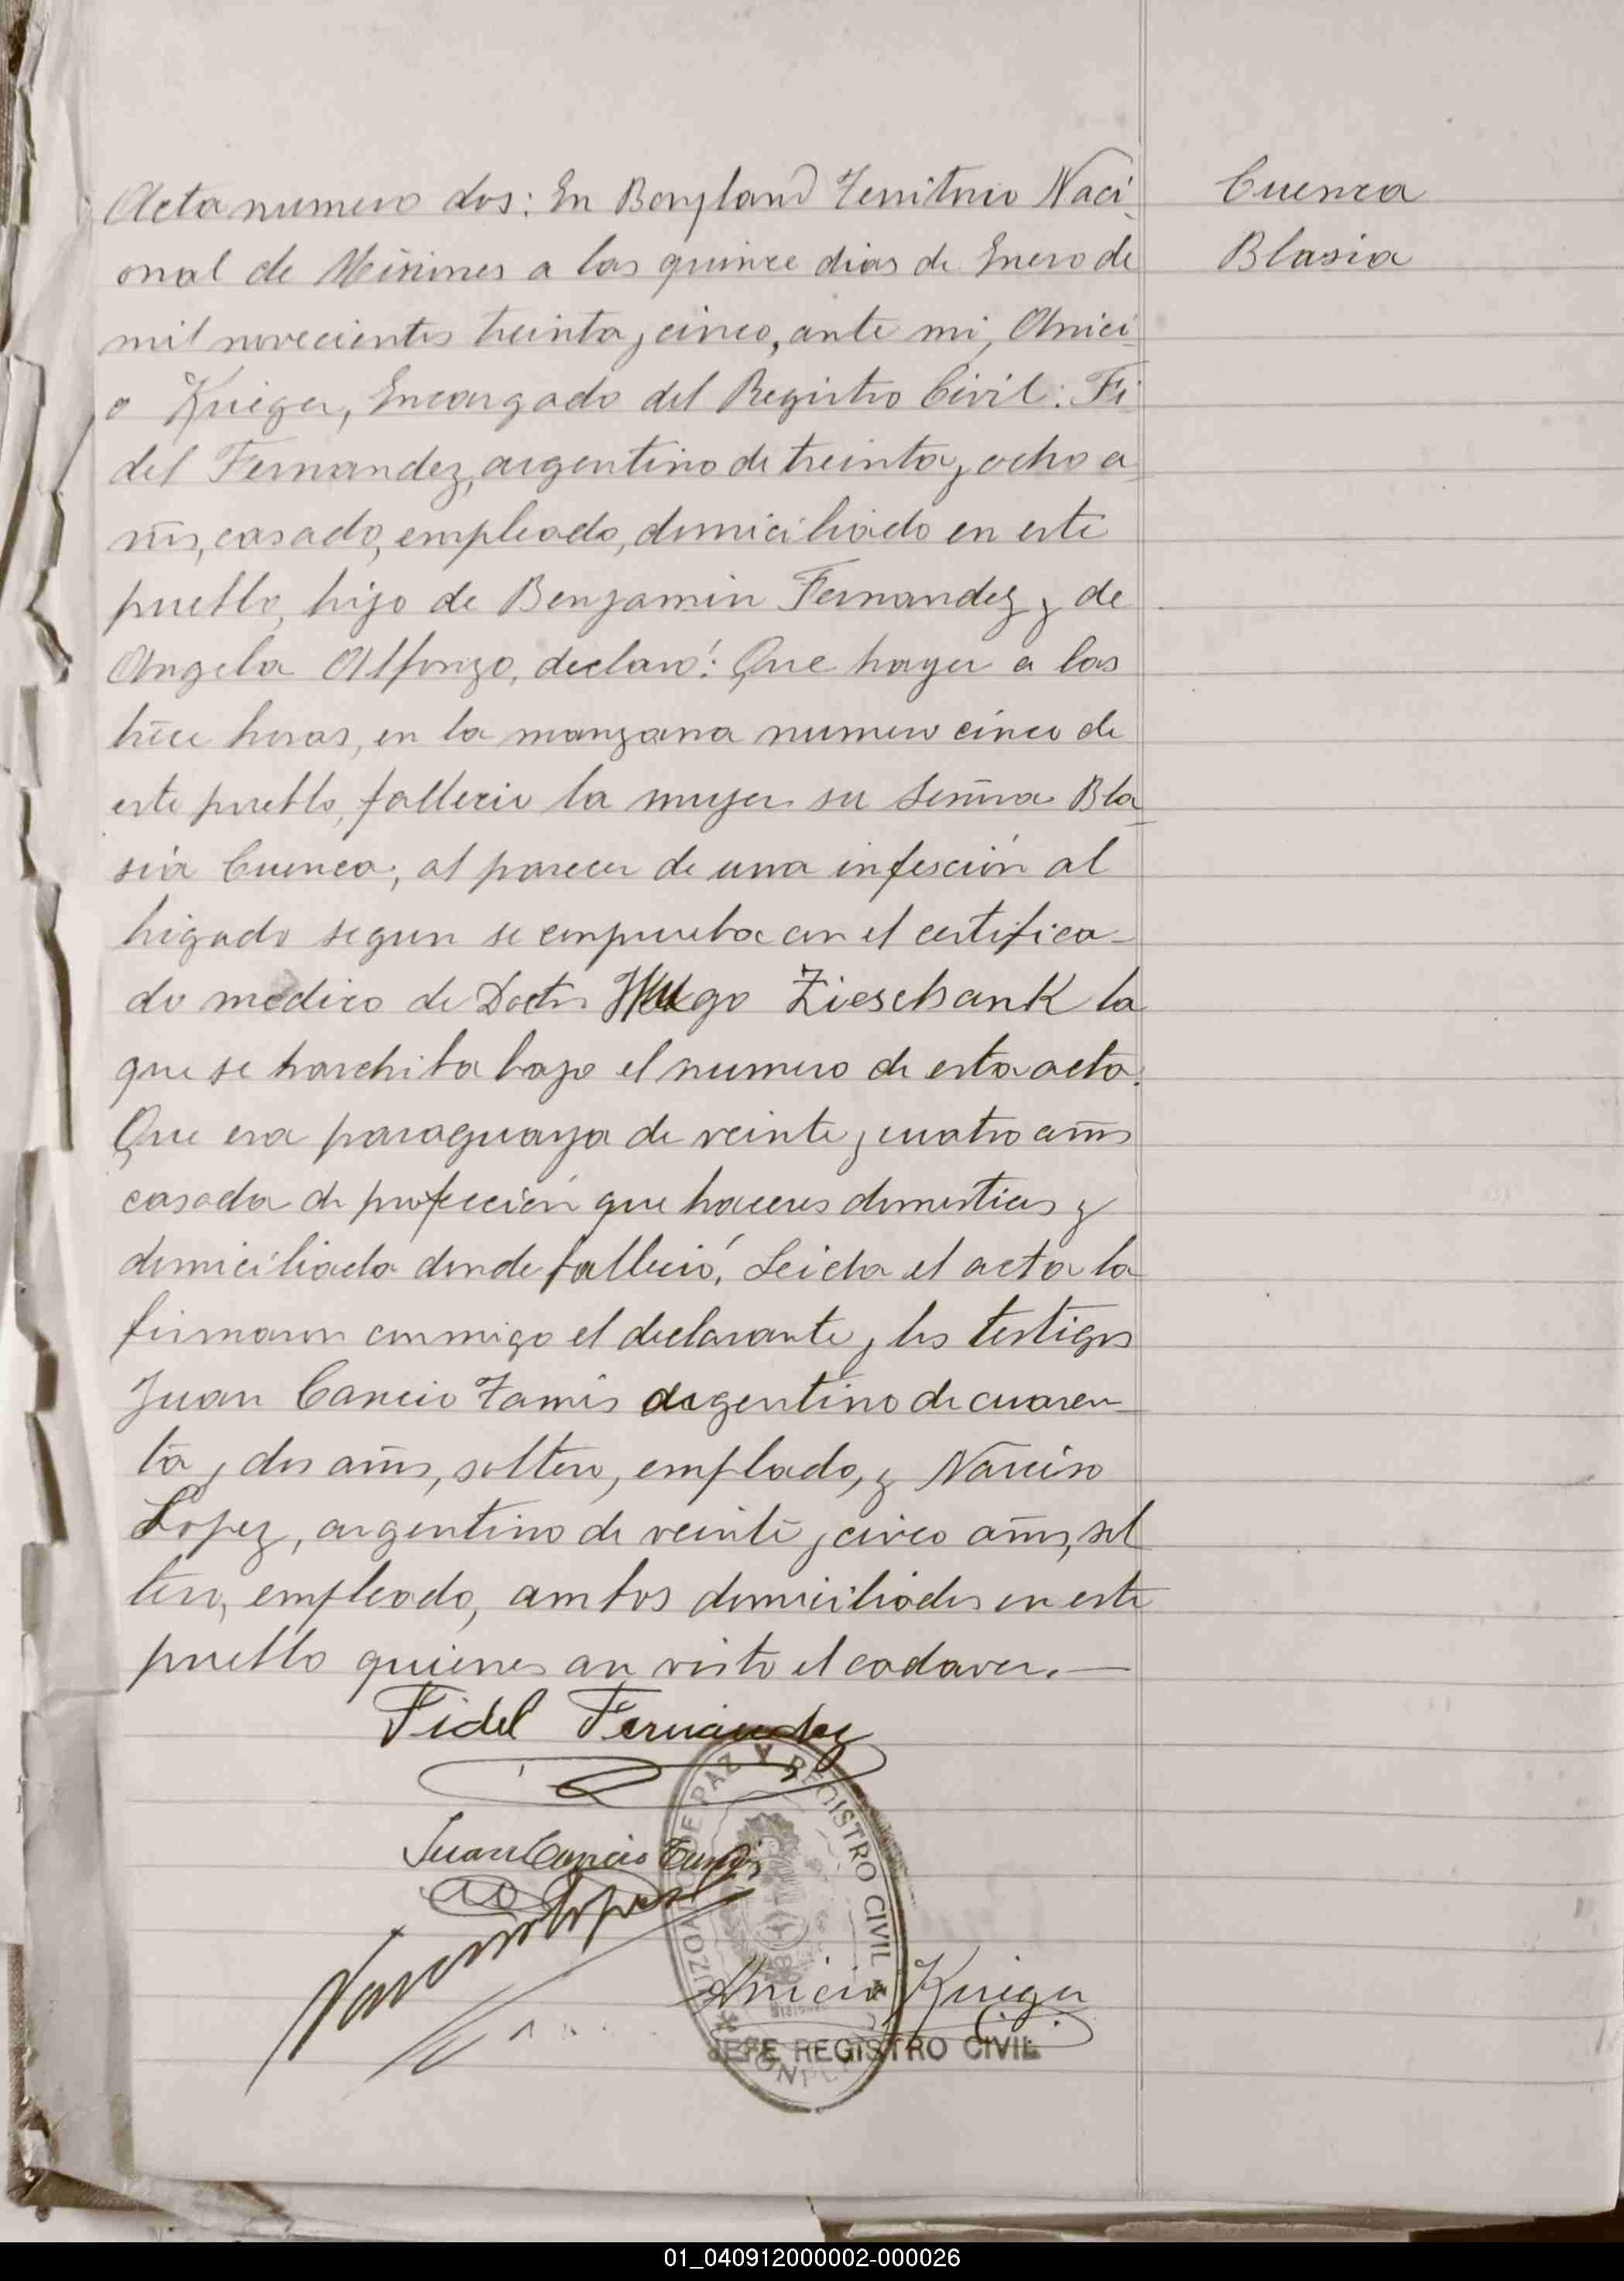 Acta numero dos: En Bonpland Territorio Naci
onal de Misiones a los quince dias de Enero de
mil novecientos treinta y cinco, ante mi, Anici
o Krieger, Encargado del Registro Civil: Fi
del Fernandez, argentino de treinta y ocho a
ños, casado, empleado, domiciliado en este
pueblo, hijo de Benjamin Fernandez y de
Angela Alfonzo, declaró: Que hayer a las
trece horas, en la manzana numero cinco de
este pueblo, fallecio la mujer su señora Bla
sia Cuenca, al parecer de una infesción al
higado segun se comprueba con el certifica-
do medico de Doctor Hugo Zieschank la
que se harchiba bajo el numero de esta acta.
Que era paraguaya de veinte y cuatro años
casada de profección que haceres domesticos y
domiciliada donde falleció. Leida el acta la
firmaron conmigo el declarante y los testigos
Juan Cancio argentino de cuaren-
ta y dos años, soltero, emplado, y Narciso
Lopez, argentino de veinte y cinco años, sol
tero, empleado, ambos domiciliados en este
pueblo quienes an visto el cadaver.—
Cuenca
Blasia
Fidel Fernández
Juan Cancio
Narciso Lopez
Anicio Krieger
JUZGADO DE PAZ Y REGISTRO CIVIL
BONPLAND
JEFE REGISTRO CIVIL
01_040912000002-000026